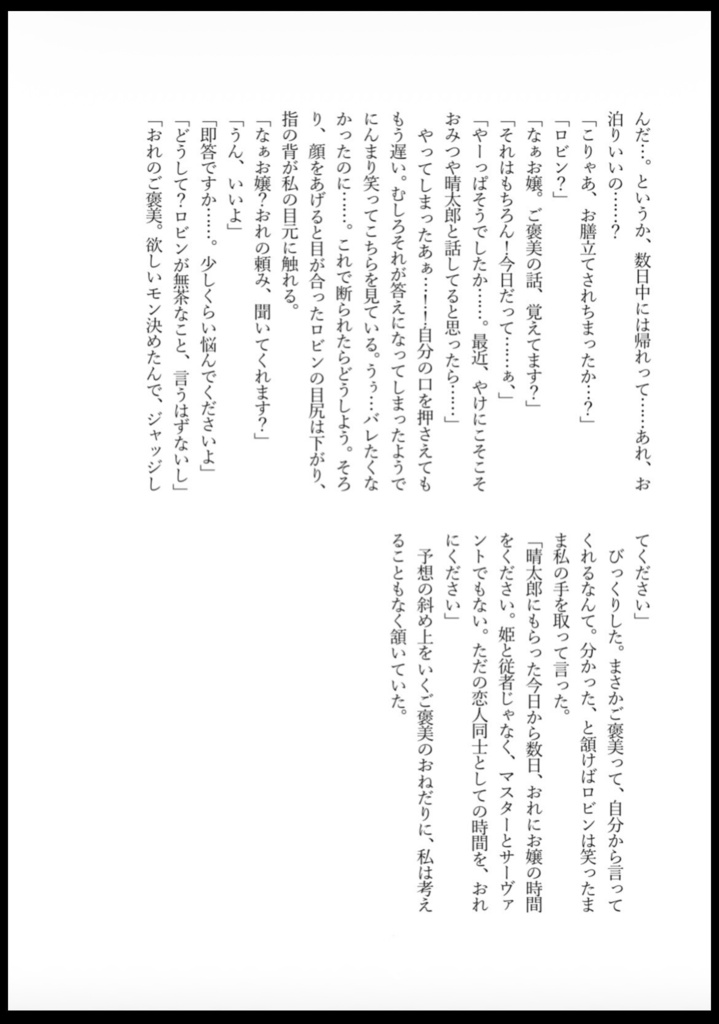 んだ…。というか、数日中には帰れって……あれ、お
泊りいいの……？
「こりゃあ、お膳立てされちまったか…？」
「ロビン？」
「なぁお嬢。ご褒美の話、覚えてます？」
「それはもちろん！今日だって……ぁ、」
「やーっぱそうでしたか……。最近、やけにこそこそ
おみつや晴太郎と話してると思ったら……」
　やってしまったあぁ…！…！自分の口を押さえても
もう遅い。むしろそれが答えになってしまったようで
にんまり笑ってこちらを見ている。うぅ…バレたくな
かったのに……。これで断られたらどうしよう。そろ
り、顔をあげると目が合ったロビンの目尻は下がり、
指の背が私の目元に触れる。
「なぁお嬢？おれの頼み、聞いてくれます？」
「うん、いいよ」
「即答ですか……。少しくらい悩んでくださいよ」
「どうして？ロビンが無茶なこと、言うはずないし」
「おれのご褒美。欲しいモン決めたんで、ジャッジし
てください」
　びっくりした。まさかご褒美って、自分から言って
くれるなんて。分かった、と頷けばロビンは笑ったま
ま私の手を取って言った。
「晴太郎にもらった今日から数日、おれにお嬢の時間
をください。姫と従者じゃなく、マスターとサーヴァ
ントでもない。ただの恋人同士としての時間を、おれ
にください」
　予想の斜め上をいくご褒美のおねだりに、私は考え
ることもなく頷いていた。